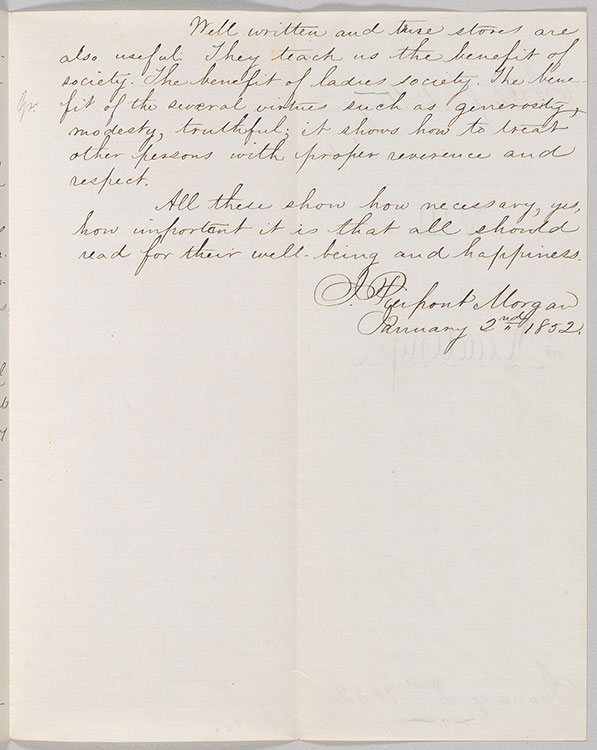 Well written and true stores are
also useful. They teach us the benefit of
society. The benefit of ladies society. The bene-
fit of the several virtues such as generosity,
modesty, truthful; it shows how to treat
other persons with proper reverence and
respect.
All these show how necessary, yes,
how important it is that all should
read for their well-being and happiness.
J. Pierpont Morgan
January 2nd 1852.
Gr.